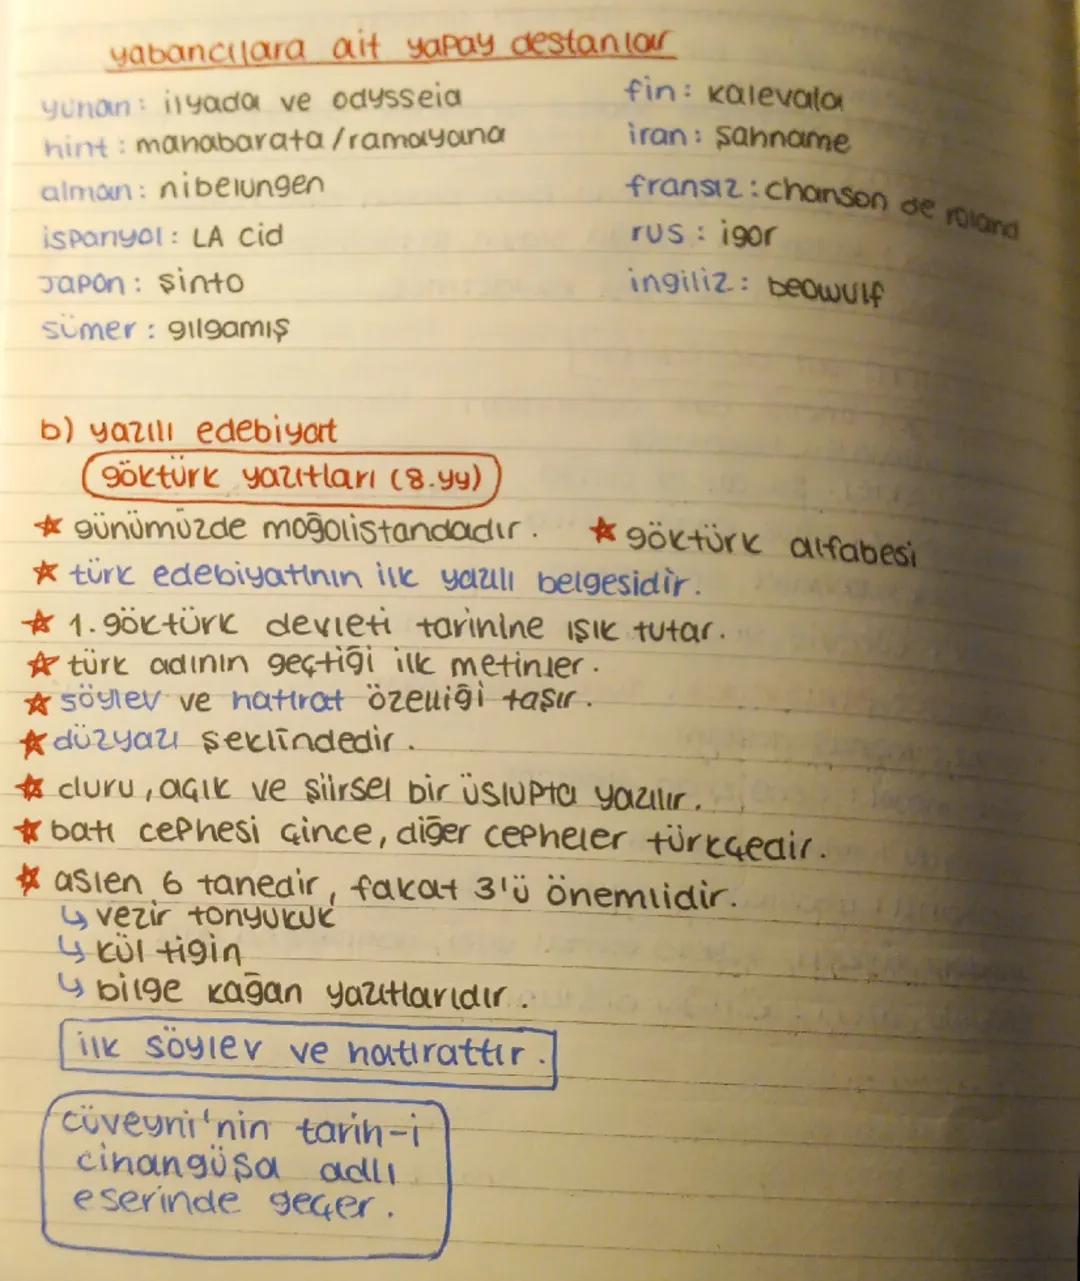 yabancılara ait yapay destanlar
yunan: ilyada ve odysseia
hint: mahabarata/ramayana
alman: nibelungen
ispanyol: LA Cid
Japon: şinto
sümer: gılgamış
fin: kalevala
iran: şahname
fransız: chanson de roland
rus: igor
ingiliz: beowulf
b) yazılı edebiyat
göktürk yazıtları (8.yy)
günümüzde moğolistandadır.
göktürk alfabesi
türk edebiyatının ilk yazılı belgesidir.
1.göktürk devleti tarihine ışık tutar.
türk adının geçtiği ilk metinler.
söylev ve hatırat özelliği taşır.
düzyazı şeklindedir.
duru, açık ve şiirsel bir üslupta yazılır.
batı cephesi çince, diğer cepheler türkçedir.
aslen 6 tanedir, fakat 3'ü önemlidir.
↳ vezir tonyukuk
↳ kül tigin
↳ bilge kağan yazıtlarıdır.
ilk söylev ve hatırattır.
cüveyni'nin tarih-i
cihangüşa adlı
eserinde geçer.